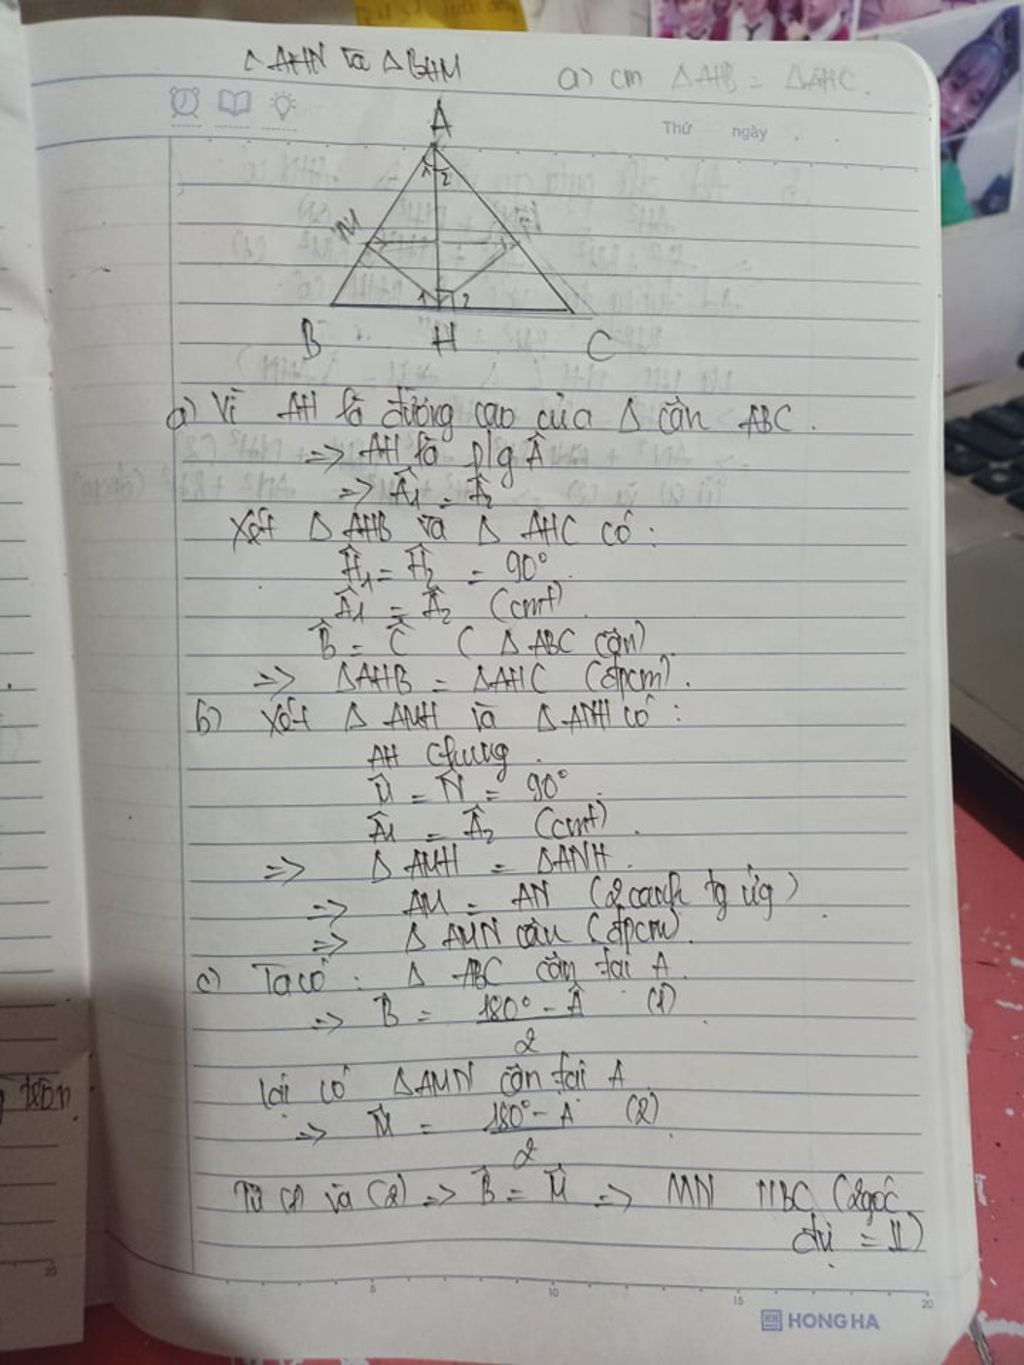 △ AHN và △ BHM
a) cm △AHB = △AHC.
Thứ ngày
A
1 2
M N
1 2
B H C
a) Vì AH là đường cao của △ cân ABC.
=> AH là p/g Â
=> Â1 = Â2
Xét △ AHB và △ AHC có:
Ĥ1 = Ĥ2 = 90°
Â1 = Â2 (cmt)
B̂ = Ĉ (△ ABC cân)
=> △AHB = △AHC (đpcm).
b) Xét △ AMH và △ANH có:
AH chung
M̂ = N̂ = 90°
Â1 = Â2 (cmt)
=> △ AMH = △ANH.
=> AM = AN (2 cạnh tg ứg)
=> △ AMN cân (đpcm).
c) Ta có: △ ABC cân tại A
=> B̂ = 180° - Â (1)
2
Lại có △AMN cân tại A
=> M̂ = 180° - A (2)
2
Từ (1) và (2) => B̂ = M̂ => MN // BC (2 góc
đvị = //)
trên
20
5 10 15 20
HONG HA